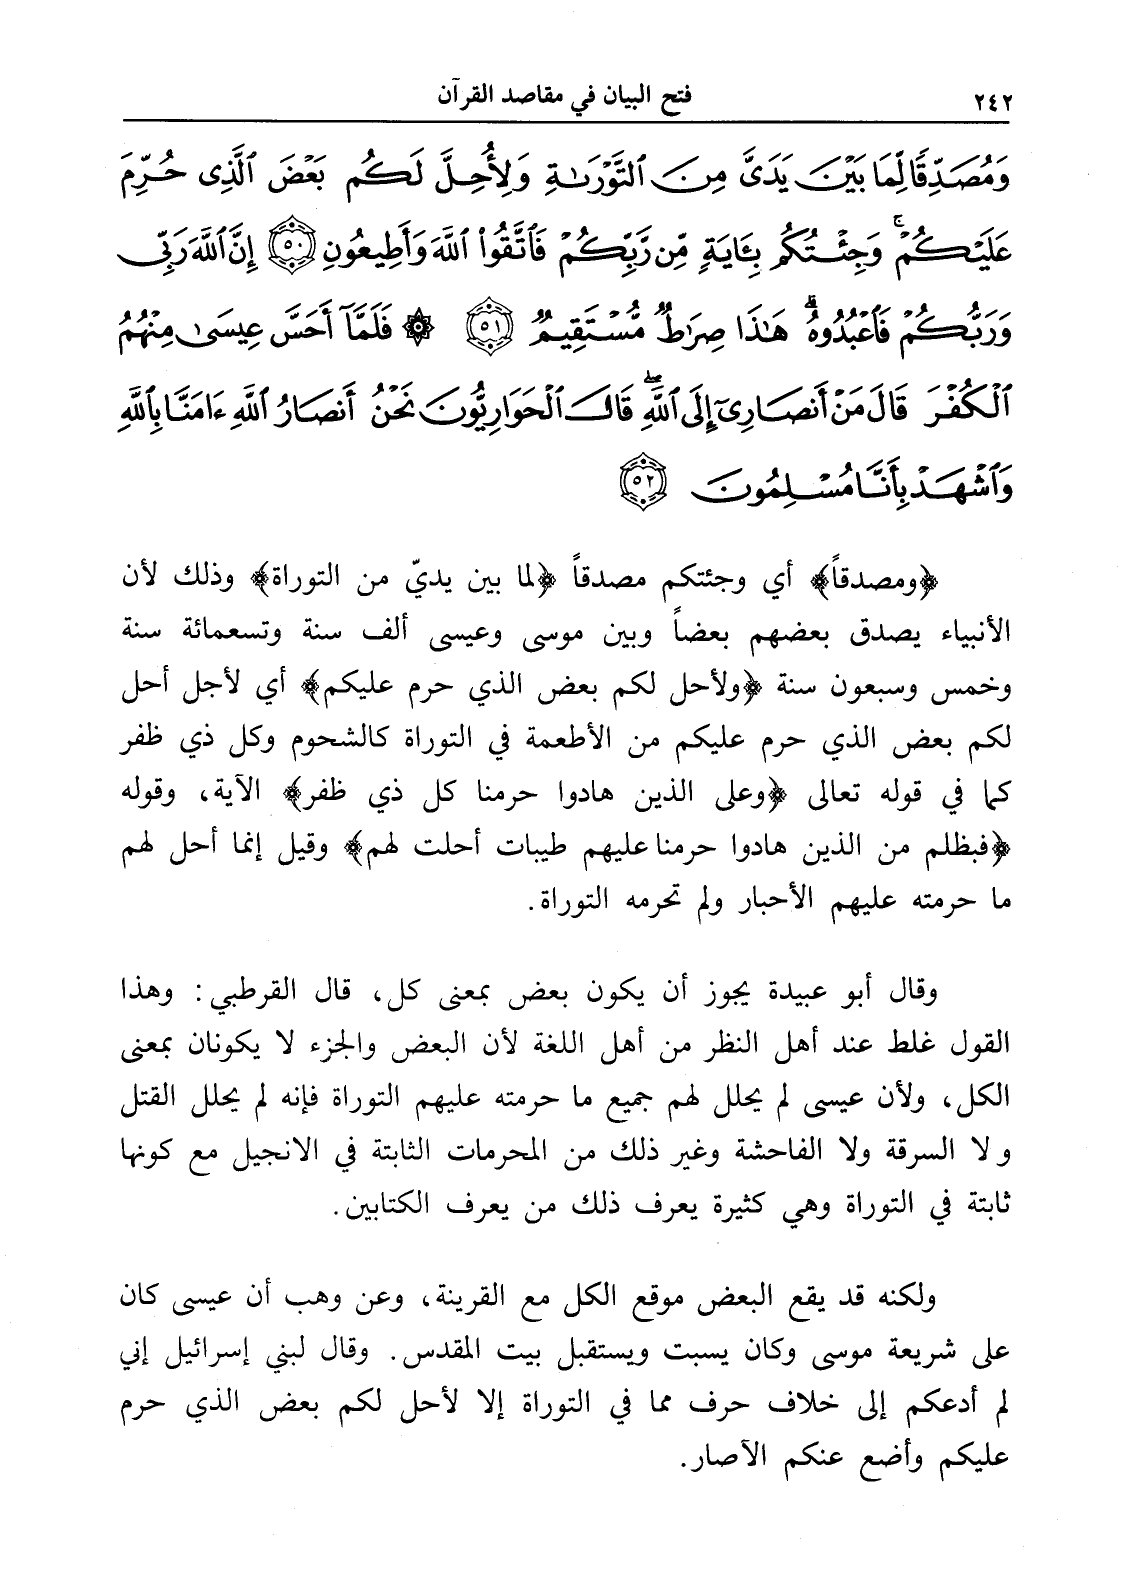 ٢٤٢ فتح البيان في مقاصد القرآن
وَمُصَدِّقًا لِّمَا بَيْنَ يَدَيَّ مِنَ ٱلتَّوْرَىٰةِ وَلِأُحِلَّ لَكُم بَعْضَ ٱلَّذِى حُرِّمَ
عَلَيْكُمْ ۚ وَجِئْتُكُم بِـَٔايَةٍ مِّن رَّبِّكُمْ فَٱتَّقُوا۟ ٱللَّهَ وَأَطِيعُونِ ٥٠ إِنَّ ٱللَّهَ رَبِّى
وَرَبُّكُمْ فَٱعْبُدُوهُ ۗ هَـٰذَا صِرَٰطٌ مُّسْتَقِيمٌ ٥١ ۞ فَلَمَّآ أَحَسَّ عِيسَىٰ مِنْهُمُ
ٱلْكُفْرَ قَالَ مَنْ أَنصَارِىٓ إِلَى ٱللَّهِ ۖ قَالَ ٱلْحَوَارِيُّونَ نَحْنُ أَنصَارُ ٱللَّهِ ءَامَنَّا بِٱللَّهِ
وَٱشْهَدْ بِأَنَّا مُسْلِمُونَ ٥٢
﴿ومصدقاً﴾ أي وجئتكم مصدقاً ﴿لما بين يديّ من التوراة﴾ وذلك لأن
الأنبياء يصدق بعضهم بعضاً وبين موسى وعيسى ألف سنة وتسعمائة سنة
وخمس وسبعون سنة ﴿ولأحل لكم بعض الذي حرم عليكم﴾ أي لأجل أحل
لكم بعض الذي حرم عليكم من الأطعمة في التوراة كالشحوم وكل ذي ظفر
كما في قوله تعالى ﴿وعلى الذين هادوا حرمنا كل ذي ظفر﴾ الآية، وقوله
﴿فبظلم من الذين هادوا حرمنا عليهم طيبات أحلت لهم﴾ وقيل إنما أحل لهم
ما حرمته عليهم الأحبار ولم تحرمه التوراة.
وقال أبو عبيدة يجوز أن يكون بعض بمعنى كل، قال القرطبي: وهذا
القول غلط عند أهل النظر من أهل اللغة لأن البعض والجزء لا يكونان بمعنى
الكل، ولأن عيسى لم يحلل لهم جميع ما حرمته عليهم التوراة فإنه لم يحلل القتل
ولا السرقة ولا الفاحشة وغير ذلك من المحرمات الثابتة في الانجيل مع كونها
ثابتة في التوراة وهي كثيرة يعرف ذلك من يعرف الكتابين.
ولكنه قد يقع البعض موقع الكل مع القرينة، وعن وهب أن عيسى كان
على شريعة موسى وكان يسبت ويستقبل بيت المقدس. وقال لبني إسرائيل إني
لم أدعكم إلى خلاف حرف مما في التوراة إلا لأحل لكم بعض الذي حرم
عليكم وأضع عنكم الآصار.